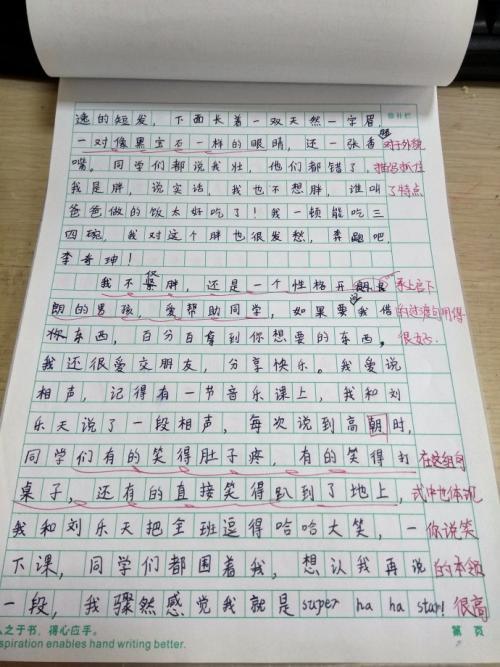 逸的短发，下面长着一双天然一字眉，
一对像黑宝石一样的眼睛，还一张香 对于外貌
嘴。同学们都说我壮，他们都错了，描写抓住
我是胖，说实话，我也不想胖，谁叫 了特点
爸爸做的饭太好吃了！我一顿能吃三
四碗，我对这个胖也很发愁，奔跑吧，
李奇珅！
我不仅胖，还是一个性格开朗 承上启下
朗的男孩，爱帮助同学，如果要我借 的过渡句用得
你东西，百分百拿到你想要的东西， 很好.
我还很爱交朋友，分享快乐。我爱说
相声，记得有一节音乐课上，我和刘
乐天说了一段相声，每次说到高朝时，
同学们有的笑得肚子疼，有的笑得打 在这组句
桌子，还有的直接笑得趴到了地上， 式中也体现
我和刘乐天把全班逗得哈哈大笑，一 你说笑
下课，同学们都围着我，想认我再说 的本领
一段，我骤然感觉我就是super ha ha star! 很高
于书．得心应手。 第 页
spiration enables hand writing better.